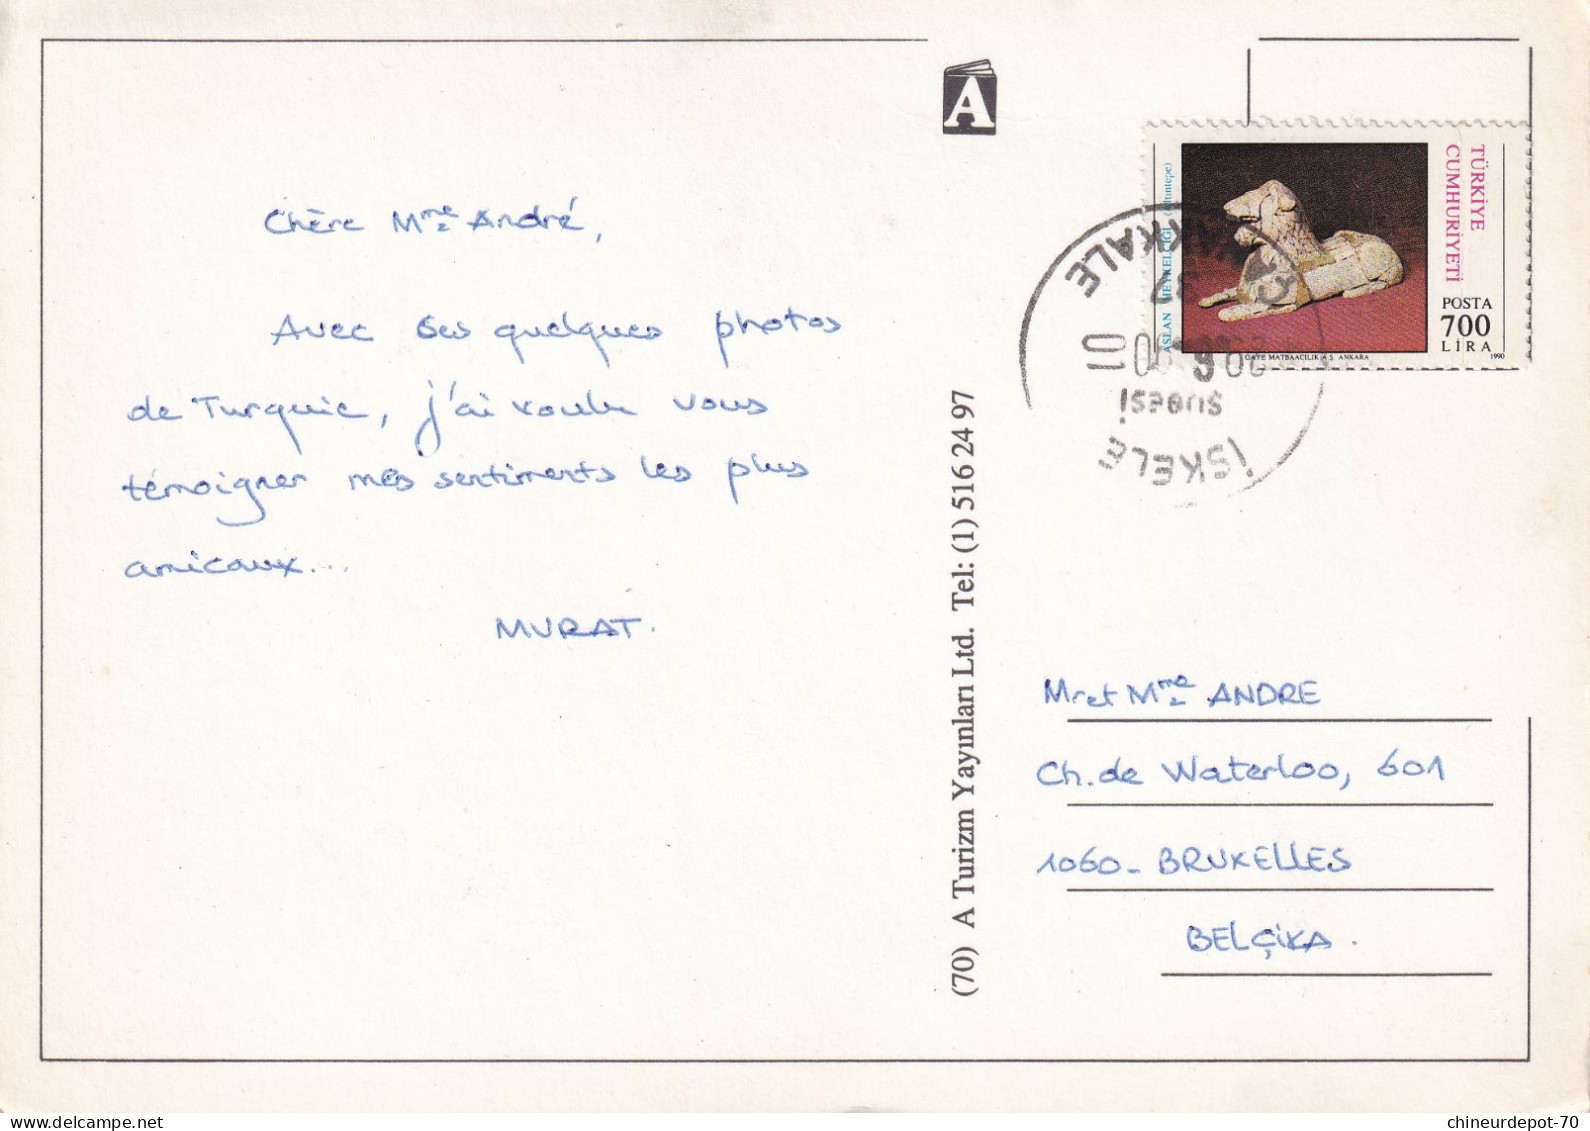 Chère Mme André,
Avec ces quelques photos
de Turquie, j'ai voulu vous
témoigner mes sentiments les plus
amicaux...
MURAT.
A
(70) A Turizm Yayınları Ltd. Tel: (1) 516 24 97
TÜRKİYE
CUMHURİYETİ
ASLAN HEYKELCİĞİ (Altıntepe)
POSTA
700
LİRA
GAYE MATBAACILIK A.Ş. ANKARA
1990
ÇANAKKALE
01
Şubesi
İSKELE
Mr et Mme ANDRE
Ch. de Waterloo, 601
1060 - BRUXELLES
BELÇİKA.
chineurdepot-70